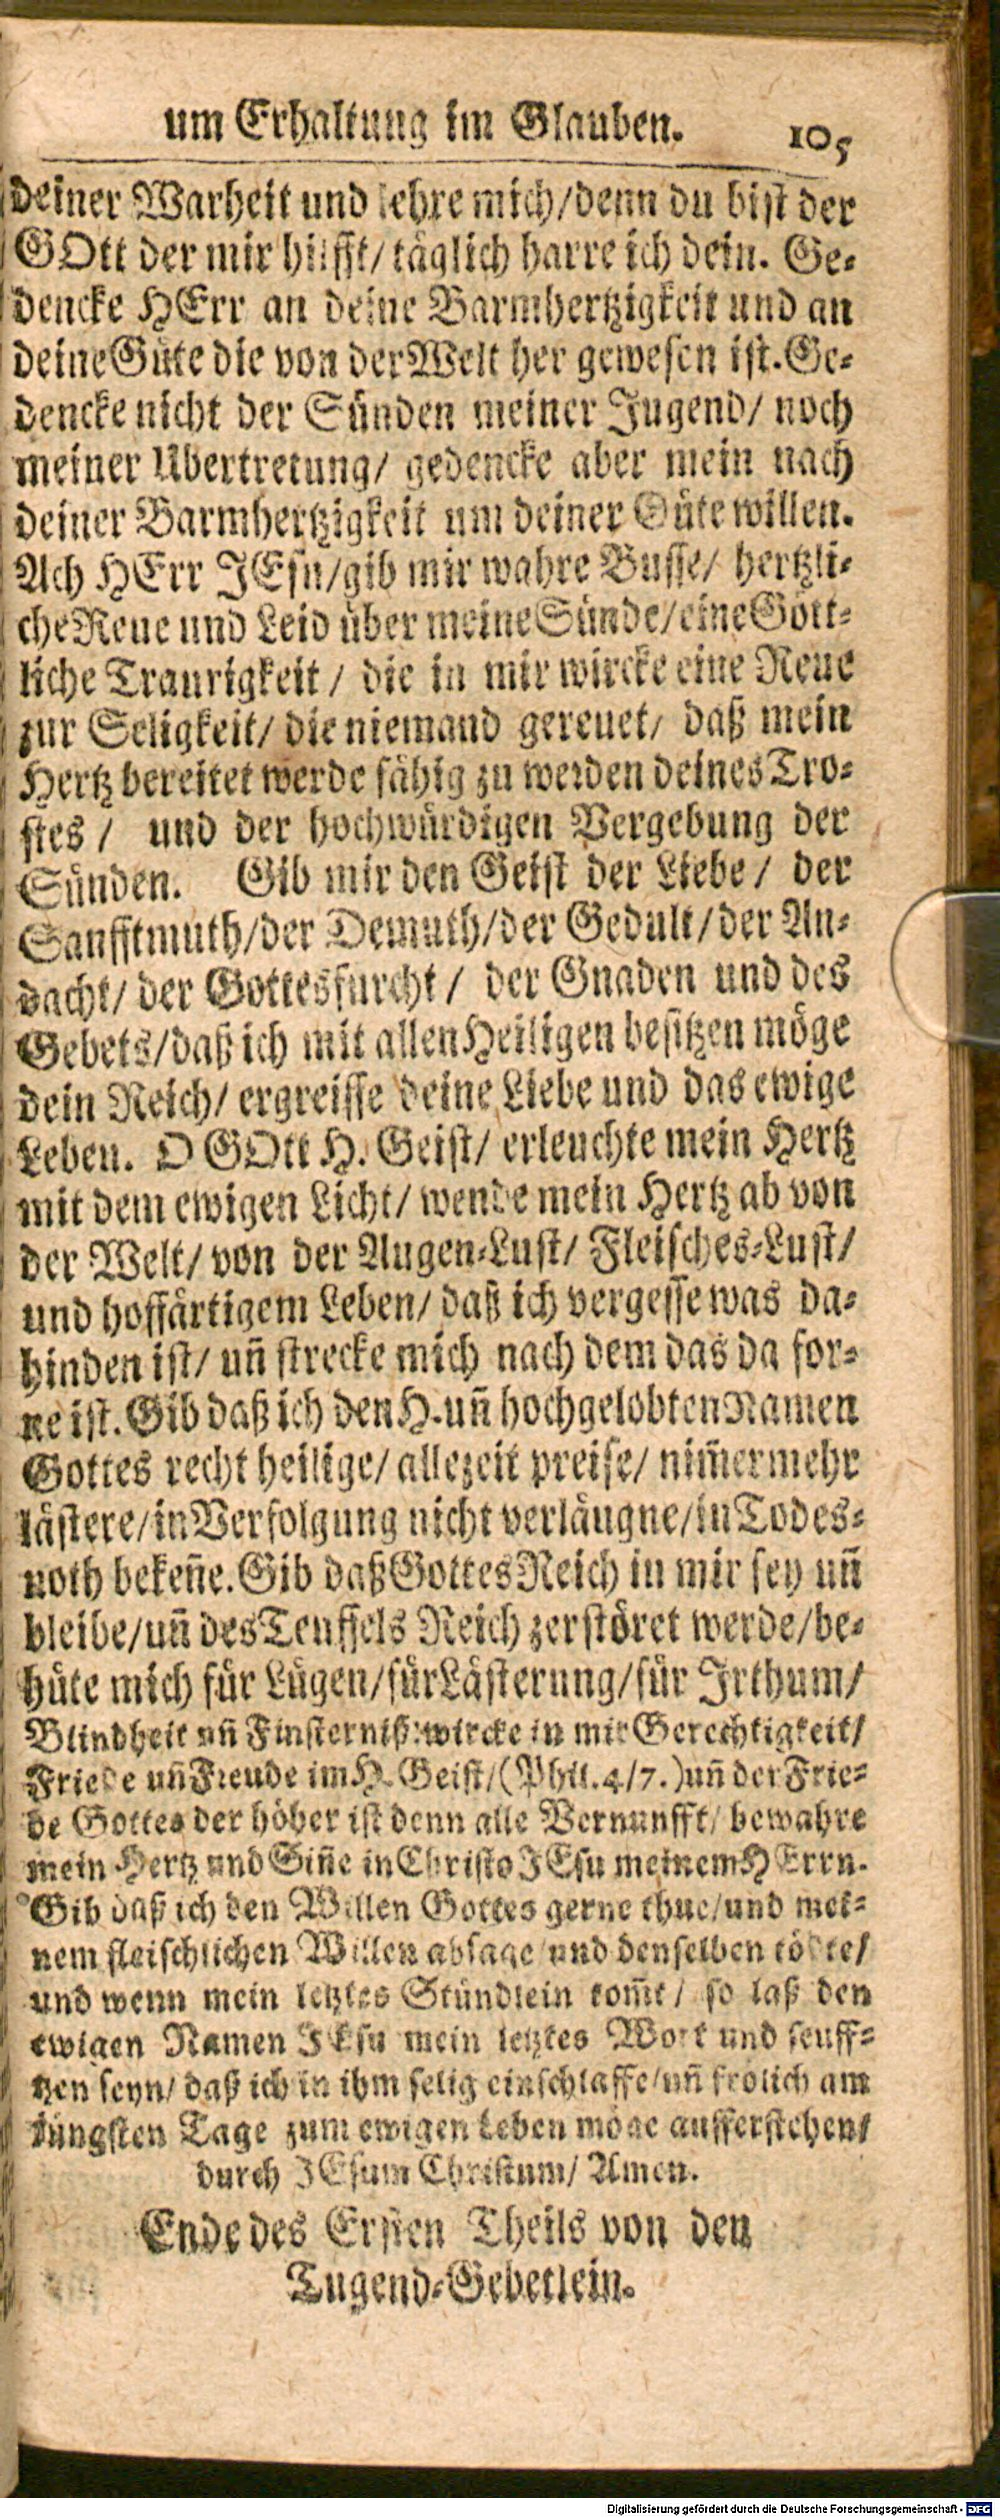 um Erhaltung im Glauben. 105
deiner Warheit und lehre mich/denn du bist der
GOtt der mir hilfft/ täglich harre ich dein. Ge-
dencke HErr an deine Barmhertzigkeit und an
deine Güte die von der Welt her gewesen ist. Ge-
dencke nicht der Sünden meiner Jugend/ noch
meiner Ubertretung/ gedencke aber mein nach
deiner Barmhertzigkeit um deiner Güte willen.
Ach HErr JEsu/gib mir wahre Busse/ hertzli-
che Reue und Leid über meine Sünde/eine Gött-
liche Traurigkeit/ die in mir wircke eine Reue
zur Seligkeit/ die niemand gereuet/ daß mein
Hertz bereitet werde fähig zu werden deines Tro-
stes/ und der hochwürdigen Vergebung der
Sünden. Gib mir den Geist der Liebe/ der
Sanfftmuth/der Demuth/der Gedult/der An-
dacht/ der Gottesfurcht/ der Gnaden und des
Gebets/daß ich mit allen Heiligen besitzen möge
dein Reich/ ergreiffe deine Liebe und das ewige
Leben. O GOtt H. Geist/ erleuchte mein Hertz
mit dem ewigen Licht/ wende mein Hertz ab von
der Welt/ von der Augen-Lust/ Fleisches-Lust/
und hoffärtigem Leben/ daß ich vergesse was da-
hinden ist/ uñ strecke mich nach dem das da for-
ne ist. Gib daß ich den H. uñ hochgelobten Namen
Gottes recht heilige/ allezeit preise/ nim̃ermehr
lästere/in Verfolgung nicht verläugne/in Todes-
noth bekeñe. Gib daß Gottes Reich in mir sey uñ
bleibe/uñ des Teuffels Reich zerstöret werde/be-
hüte mich für Lügen/für Lästerung/für Irthum/
Blindheit uñ Finsterniß: wircke in mir Gerechtigkeit/
Friede uñ Freude im H. Geist/(Phil. 4/7.) uñ der Frie-
de Gottes der höher ist denn alle Vernunfft/ bewahre
mein Hertz und Siñe in Christo JEsu meinem HErrn.
Gib daß ich den Willen Gottes gerne thue/und mei-
nem fleischlichen Willen absage und denselben tödte/
und wenn mein letztes Stündlein kom̃t/ so laß den
ewigen Namen JEsu mein letztes Wort und seuff-
tzen seyn/ daß ich in ihm selig einschlaffe/uñ frölich am
Jüngsten Tage zum ewigen Leben möge aufferstehen/
durch JEsum Christum/ Amen.
Ende des Ersten Theils von den
Tugend-Gebetlein.
Digitalisierung gefördert durch die Deutsche Forschungsgemeinschaft - DFG